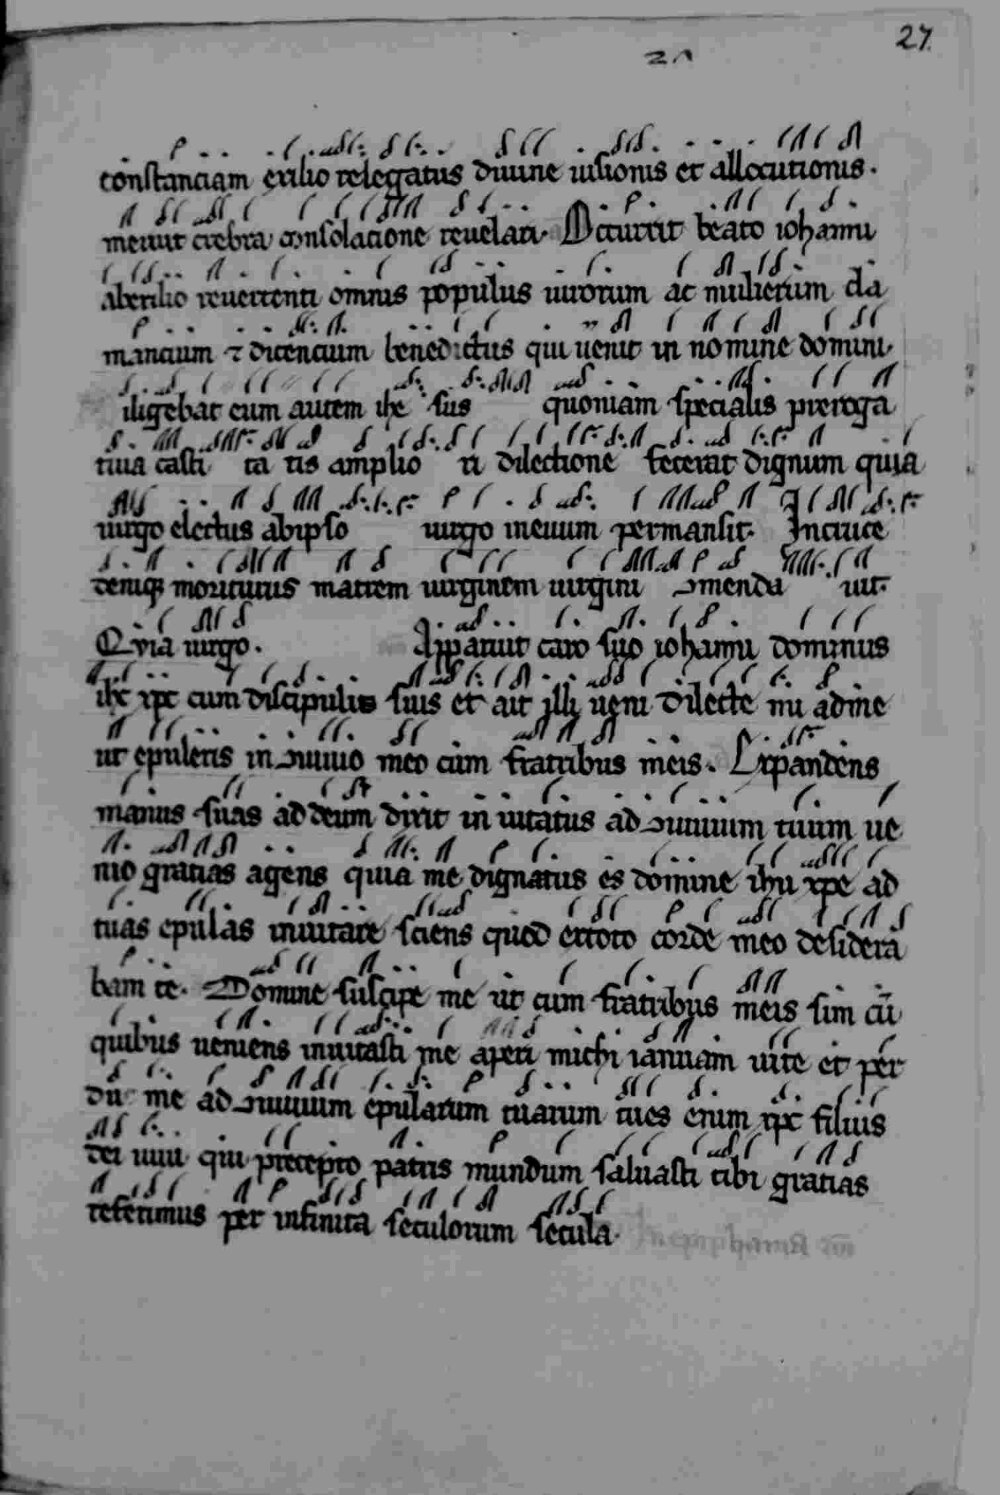 27
21
constanciam exilio relegatus diuine uisionis et allocutionis.
meruit crebra consolacione reuelari. Occurrit beato iohanni
abexilio reuertenti omnis populus uirorum ac mulierum cla
mancium ⁊ dicencium benedictus qui uenit in nomine domini.
iligebat eum autem ihc sus quoniam specialis preroga
tiua casti ta tis amplio ri dilectione fecerat dignum quia
uirgo electus abipso uirgo ineuum permansit. Incruce
deniq; moriturus matrem uirginem uirgini ↄmenda uit.
Quia uirgo. Apparuit caro suo iohanni dominus
ihc xpc cum discipulis suis et ait illi ueni dilecte mi adme
ut epuleris in ↄuiuio meo cum fratribus meis. Expandens
manus suas ad deum dixit in uitatus ad ↄuiuium tuum ue
nio gratias agens quia me dignatus es domine ihu xpe ad
tuas epulas inuitare sciens quod extoto corde meo desidera
bam te. Domine suscipe me ut cum fratribus meis sim cū
quibus ueniens inuitasti me aperi michi ianuam uite et per
duc me ad ↄuiuium epularum tuarum tues enim xpc filius
dei uiui qui precepto patris mundum saluasti tibi gratias
referimus per infinita seculorum secula.